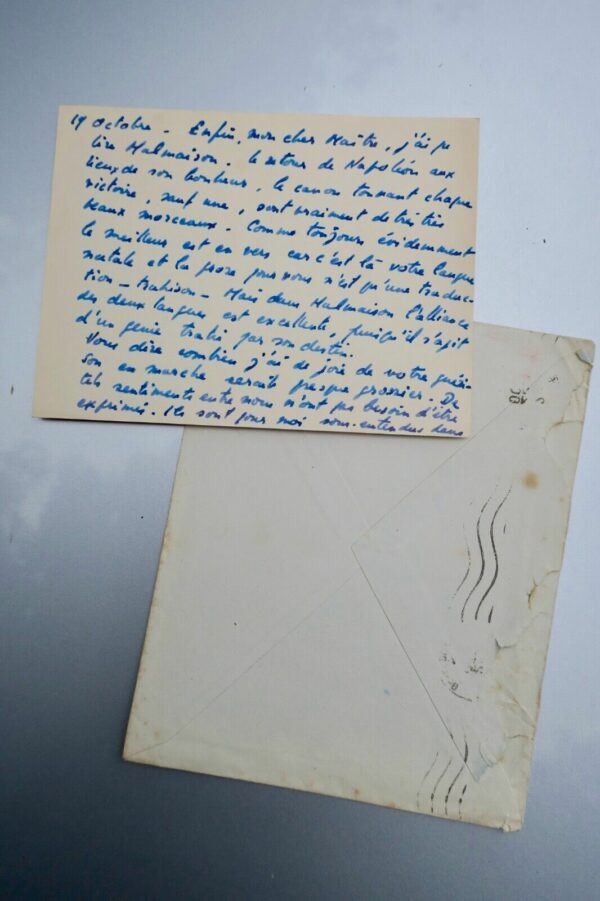 19 Octobre - Enfin, mon cher Maître, j'ai pu
lire Malmaison. Le retour de Napoléon aux
lieux de son bonheur, le canon tonnant chaque
victoire, sauf une, sont vraiment de très très
beaux morceaux. Comme toujours évidemment
le meilleur est en vers car c'est là votre langue
natale et la prose pour vous n'est qu'une traduc-
tion - trahison - Mais dans Malmaison l'alliance
des deux langues est excellente, puisqu'il s'agit
d'un génie trahi par son destin.
Vous dire combien j'ai de joie de votre guéri-
son en marche serait presque grossier. De
tels sentiments entre nous n'ont pas besoin d'être
exprimés. Ils sont pour moi sous-entendus dans